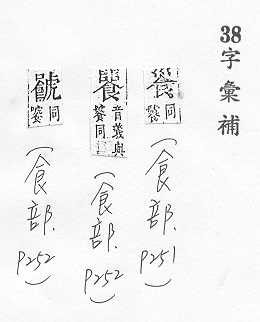 38
字彙補
同
(食部.
P251)
音義與
同
(食部.
P252)
同
(食部.
P252)